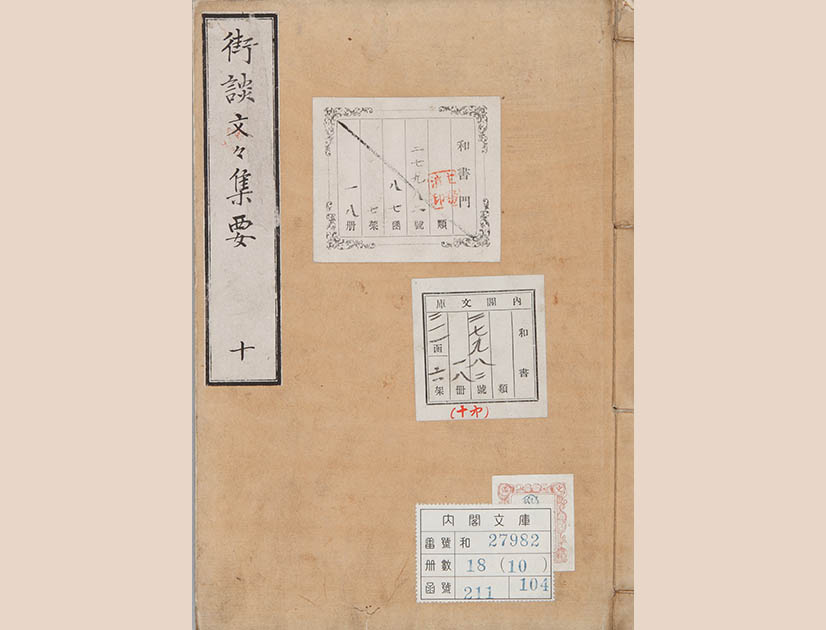 街談文々集要
十
和書門
類
二七九八二號
八七函
七架
一八册
内閣文庫
和書
類
二七九八二號
一八冊
二一一函
架
(十)
内閣文庫
番號 和 27982
冊數 18 (10)
函號 211 104